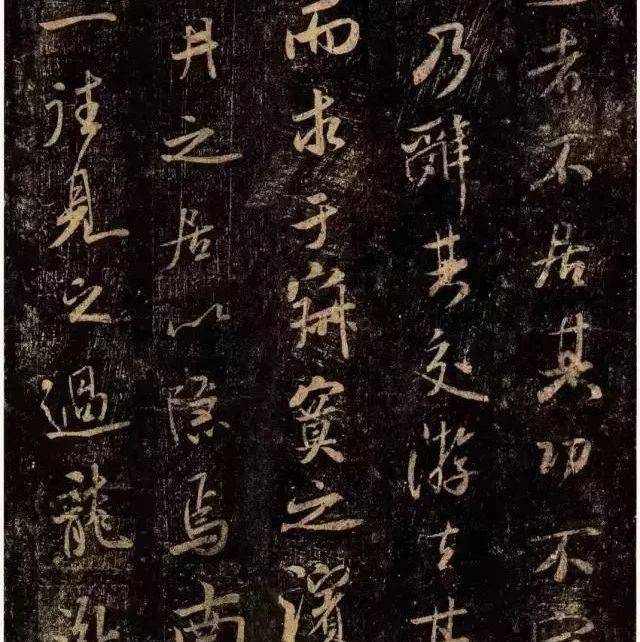 者不居其功不
乃辭其交游去其
而求于寂寞之濱
井之居以隱焉南
一往見之過龍泓